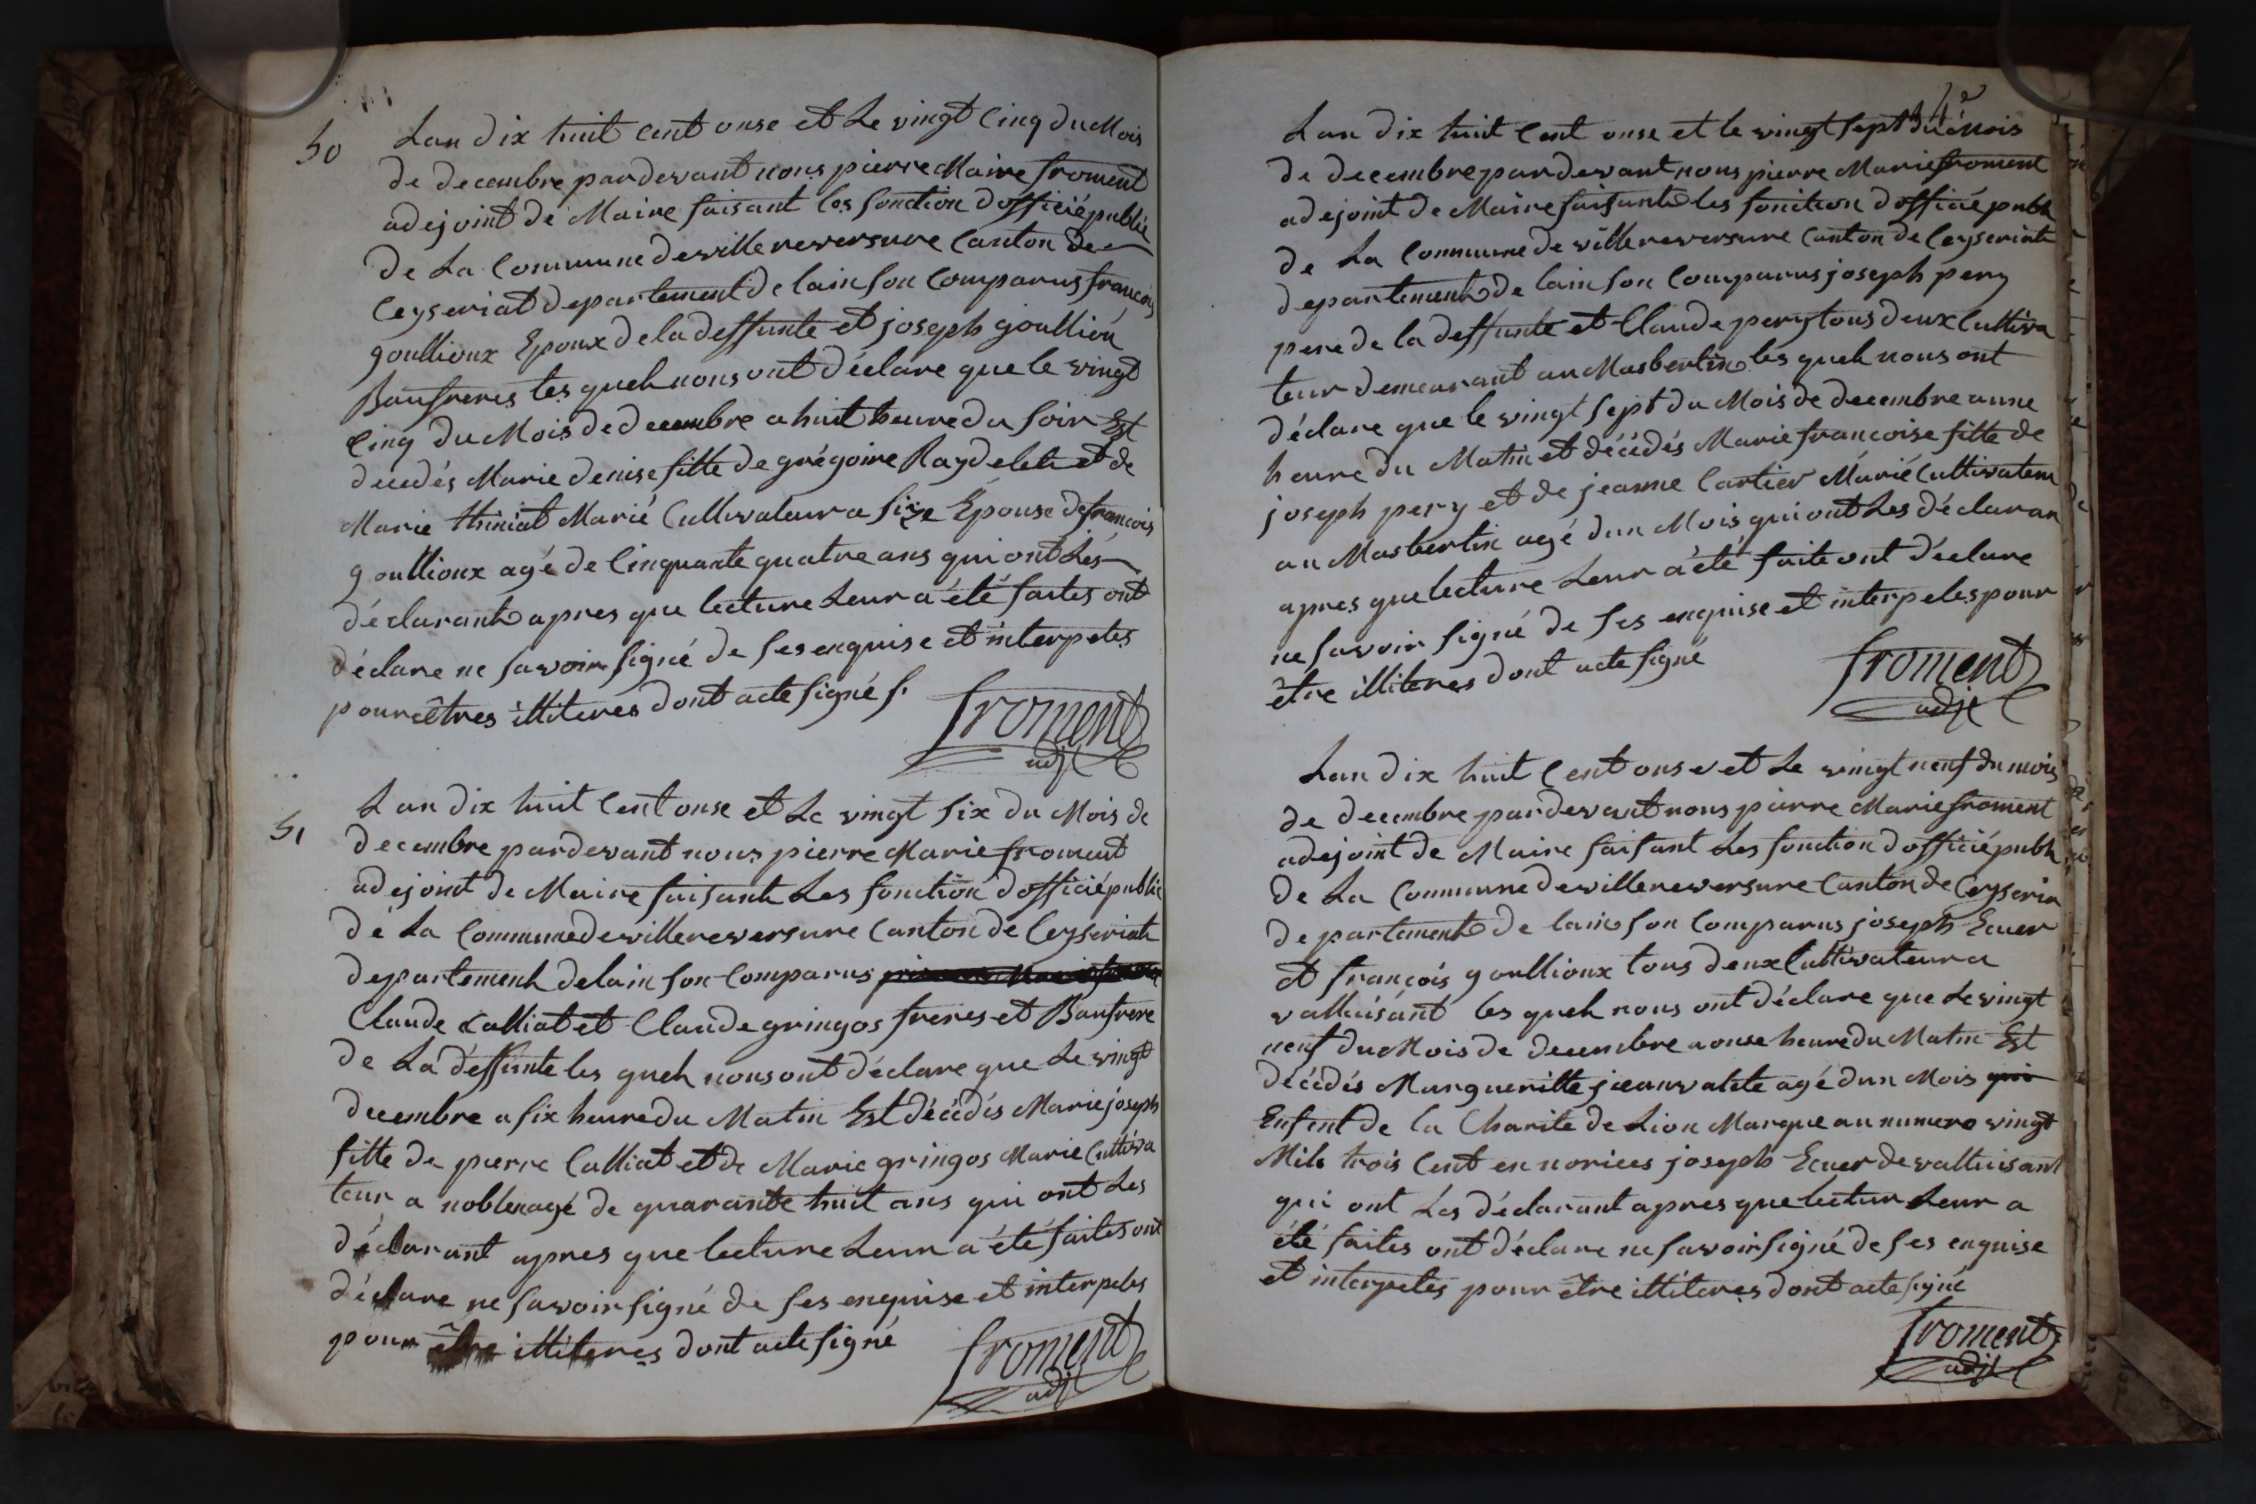 50
Lan dix huit cent onse et Le vingt Cinq du Mois
de decembre pardevant nous pierre Maire froment
adejoint de Maire faisant les fonction dofficié public
de La Commune devillereversure Canton de
Ceyseriat departement de lain son Comparus francois
goullioux Epoux dela deffunte et joseph goullion
Baufreres les quels nous ont déclare que le vingt
Cinq du Mois de decembre a huit heure du soir Est
decedés Marie denise fille de grégoire Raydelet et de
Marie thiniat Marié Cultivateur a Epouse de francois
goullioux agé de Cinquante quatre ans qui ont Les
déclarant apres que lecture Leur a été faites ont
déclare ne savoir signé de ses enquise et interpeles
pour êtres illiteres dont acte signé f.
froment
adjt
51
Lan dix huit Cent onse et Le vingt six du Mois de
decembre pardevant nous pierre Marie froment
adejoint de Maire faisant Les fonction dofficié public
dé La Commune devillereversure Canton de Ceyseriat
departement delain son Comparus
Claude Calliat et Claude gringos freres et Baufrere
de La déffunte les quels nous ont déclare que Le vingt
decembre a six heure du Matin Est décédés Marie joseph
fille de pierre Calliat et de Marie gringos Marie Cultiva
teur a noblens agé de quarante huit ans qui ont Les
déclarant apres que lecture Leur a été faites ont
déclare ne savoir signé de ses enquise et interpeles
pour être illiteres dont acte signé
froment
adjt
Lan dix huit Cent onse et le vingt sept du Mois
de decembre pardevant nous pierre Marie froment
adejoint de Maire faisant les fonction dofficié publi
de La Commune de villereversure Canton de Ceyseriat
departement de lain son Comparus joseph pery
pere de la deffunte et Claude pery tous deux Cultiva
teur demeurant au Masbertin les quels nous ont
déclare que le vingt sept du Mois de decembre a une
heure du Matin et décédés Marie francoise fille de
joseph pery et de jeanne Cartier Marié Cultivateur
au Masbertin agé dun Mois qui ont Les déclaran
apres que lecture Leur a été faite ont déclare
ne savoir signé de ses enquise et interpeles pour
être illiteres dont acte signé
froment
adjt
Lan dix huit Cent onse et Le vingt neuf du mois
de decembre pardevant nous pierre Marie froment
adejoint de Maire faisant Les fonction dofficié publi
de La Commune devillereversure Canton de Ceyseria
departement de lain son Comparus joseph Ecuer
et françois goullioux tous deux Cultivateur a
valluisant les quels nous ont déclare que Le vingt
neuf du Mois de decembre a onse heure du Matin Est
décédés Marguerite jeanvalete agé dun Mois qui
Enfent de la Charite de Lion Marque au numero vingt
Mile trois Cent en norices joseph Ecuer de valluisant
qui ont Les déclarant apres que lectur Leur a
été faites ont déclare ne savoir signé de ses enquise
et interpeles pour être illiteres dont acte signé
froment
adjt